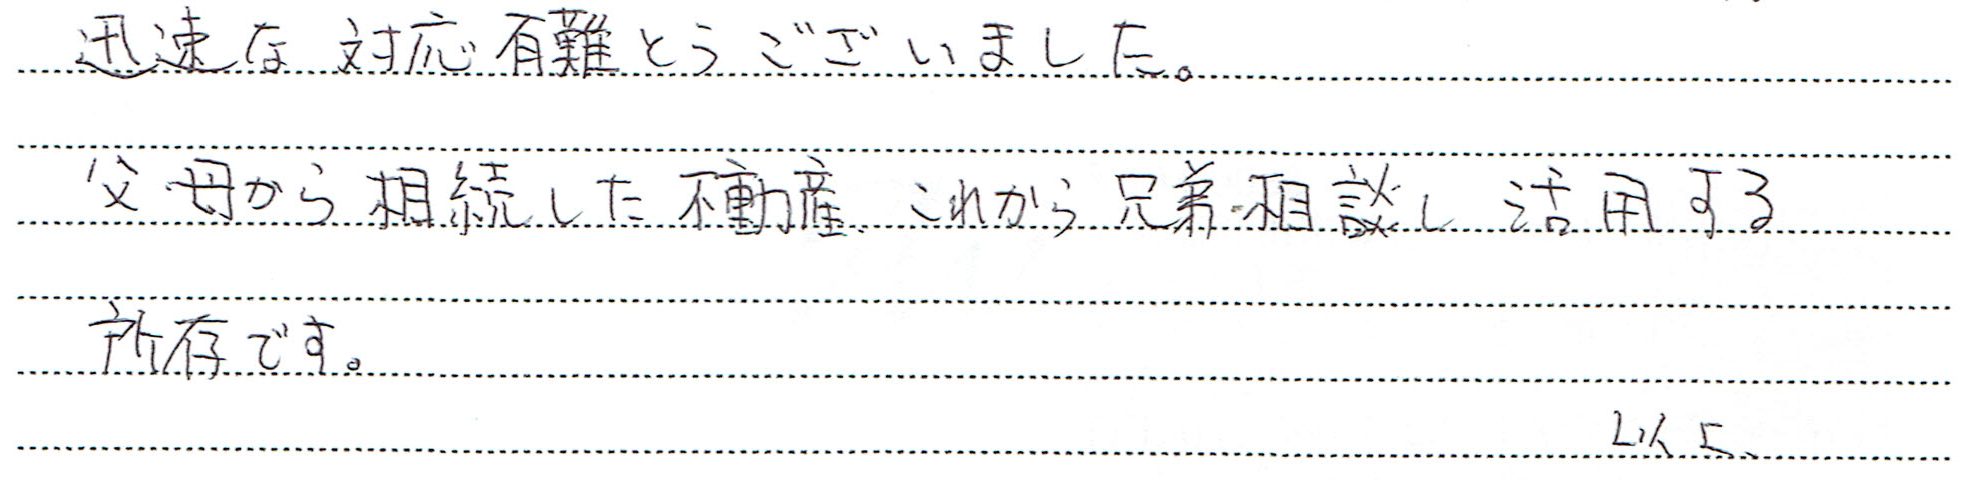 迅速な対応有難とうございました。
父母から相続した不動産、これから兄弟相談し活用する
所存です。
以上、